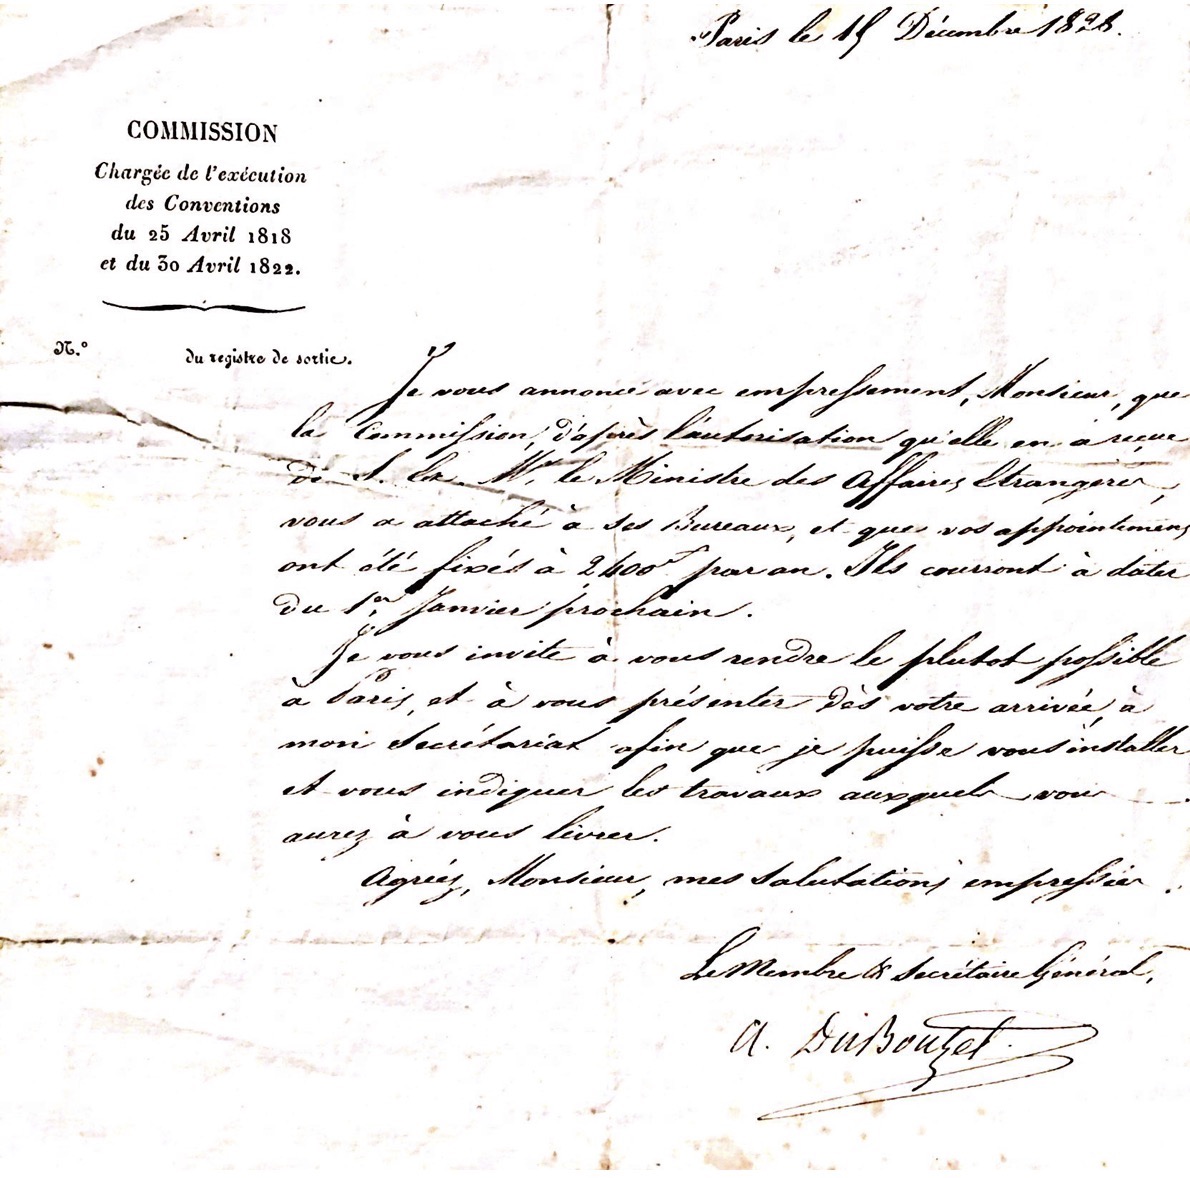 Paris le 15 Décembre 1828.
COMMISSION
Chargée de l'exécution
des Conventions
du 25 Avril 1818
et du 30 Avril 1822.
N.° du registre de sortie.
Je vous annonce avec empressement, Monsieur, que
la Commission, d'après l'autorisation qu'elle en a reçue
de S. Ex. Mr. le Ministre des Affaires Etrangères,
vous a attaché à ses Bureaux, et que vos appointemens
ont été fixés à 2400f par an. Ils courront à dater
du 1er Janvier prochain.
Je vous invite à vous rendre le plutot possible
à Paris, et à vous présenter dès votre arrivée, à
mon Secrétariat afin que je puisse vous installer
et vous indiquer les travaux auxquels vous
aurez à vous livrer.
Agréez, Monsieur, mes Salutations empressées.
Le Membre & Secrétaire Général,
A. DuBouzet.